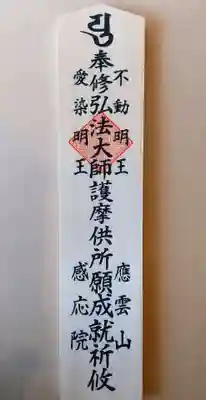 不動明王 應雲山
奉修弘法大師護摩供所願成就祈攸
愛染明王 感応院